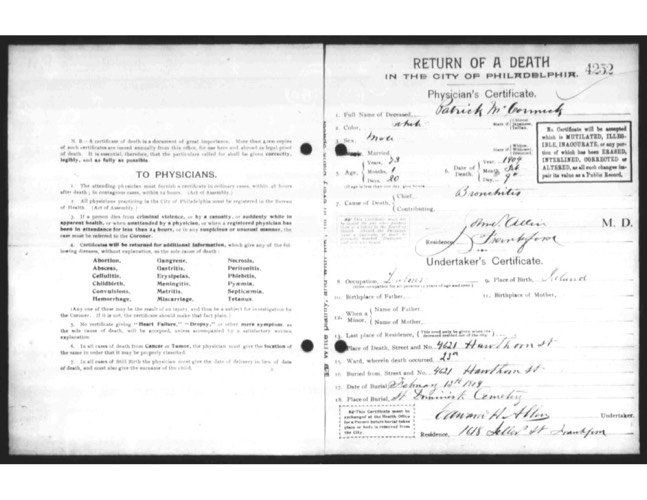 N. B.—A certificate of death is a document of great importance. More than 4,000 copies
of such certificates are issued annually from this office, for use here and abroad as legal proof
of death. It is essential, therefore, that the particulars called for shall be given correctly,
legibly, and as fully as possible.
TO PHYSICIANS.
1. The attending physician must furnish a certificate in ordinary cases, within 48 hours
after death; in contagious cases, within 24 hours. (Act of Assembly.)
2. All physicians practicing in the City of Philadelphia must be registered in the Bureau
of Health. (Act of Assembly.)
3. If a person dies from criminal violence, or by a casualty, or suddenly while in
apparent health, or when unattended by a physician, or when a registered physician has
been in attendance for less than 24 hours, or in any suspicious or unusual manner, the
case must be referred to the Coroner.
4. Certificates will be returned for additional information, which give any of the fol-
lowing diseases, without explanation, as the sole cause of death:
Abortion, Gangrene, Necrosis,
Abscess, Gastritis, Peritonitis,
Cellulitis, Erysipelas, Phlebitis,
Childbirth, Meningitis, Pyæmia,
Convulsions, Metritis, Septicæmia,
Hemorrhage, Miscarriage, Tetanus.
(Any one of these may be the result of an injury, and thus be a subject for investigation by
the Coroner. If it is not, the certificate should make that fact plain.)
5. No certificate giving "Heart Failure," "Dropsy," or other mere symptom, as
the sole cause of death, will be accepted, unless accompanied by a satisfactory written
explanation.
6. In all cases of death from Cancer or Tumor, the physician must give the location of
the same in order that it may be properly classified.
7. In all cases of Still Birth the physician must give the date of delivery in lieu of date
of death, and must also give the surname of the child.
RETURN OF A DEATH
IN THE CITY OF PHILADELPHIA.
4252
Physician's Certificate.
1. Full Name of Deceased, Patrick McCormick
2. Color,
3. Sex, Male
Married
5. Age, Years, 73 6. Date of Death Year, 1909
Months, 1 Month, Feb
Days, 20 Day, 9
7. Cause of Death, Chief, Bronchitis
Contributing,
No Certificate will be accepted
which is MUTILATED, ILLEG-
IBLE, INACCURATE, or any por-
tion of which has been ERASED,
INTERLINED, CORRECTED or
ALTERED, as all such changes im-
pair its value as a Public Record.
M. D.
Residence, Frankford
Undertaker's Certificate.
8. Occupation, 9. Place of Birth, Ireland
10. Birthplace of Father, 11. Birthplace of Mother,
12. When a Minor. Name of Father,
Name of Mother,
13. Last place of Residence,
14. Place of Death, Street and No. 4621 Hawthorn St
15. Ward, wherein death occurred, 23rd
16. Buried from, Street and No. 4621 Hawthorn St
17. Date of Burial, February 13th 1909
18. Place of Burial, St Dominick Cemetery
This Certificate must be
exchanged at the Health Office
for a Permit before burial takes
place or body is removed from
the City.
Undertaker.
Residence, 1618 St Frankford